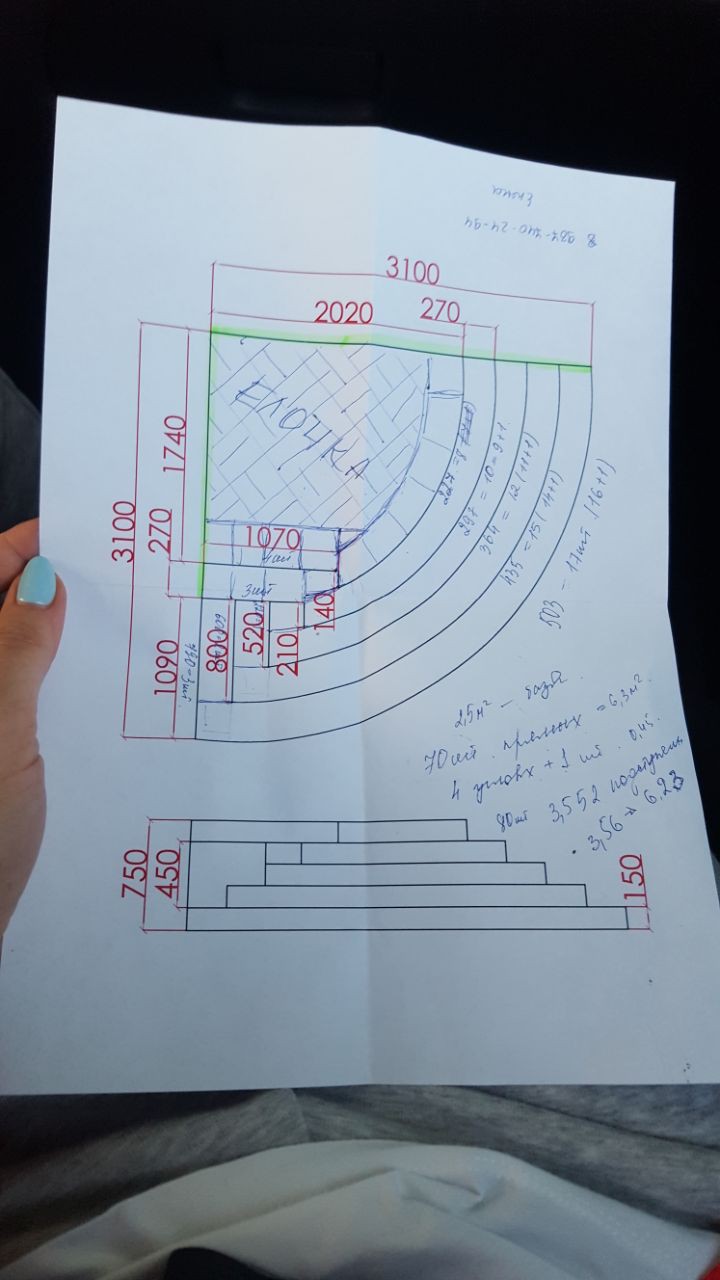 8 987-740-24-94
3100
2020
270
ЕЛОЧКА
1740
270
3100
1070
4шт
3шт
140
210
520
800
1090
430=3шт
227 = 8
297 = 10 = 9+1.
364 = 12 (11+1)
435 = 15 (14+1)
503 - 17шт (16+1)
2,5м² - базов.
70шт. прямых = 6,3м².
4 угловых + 1 шт. 0,45.
80шт 3,552 подступень
3,56 → 6,23
750
450
150